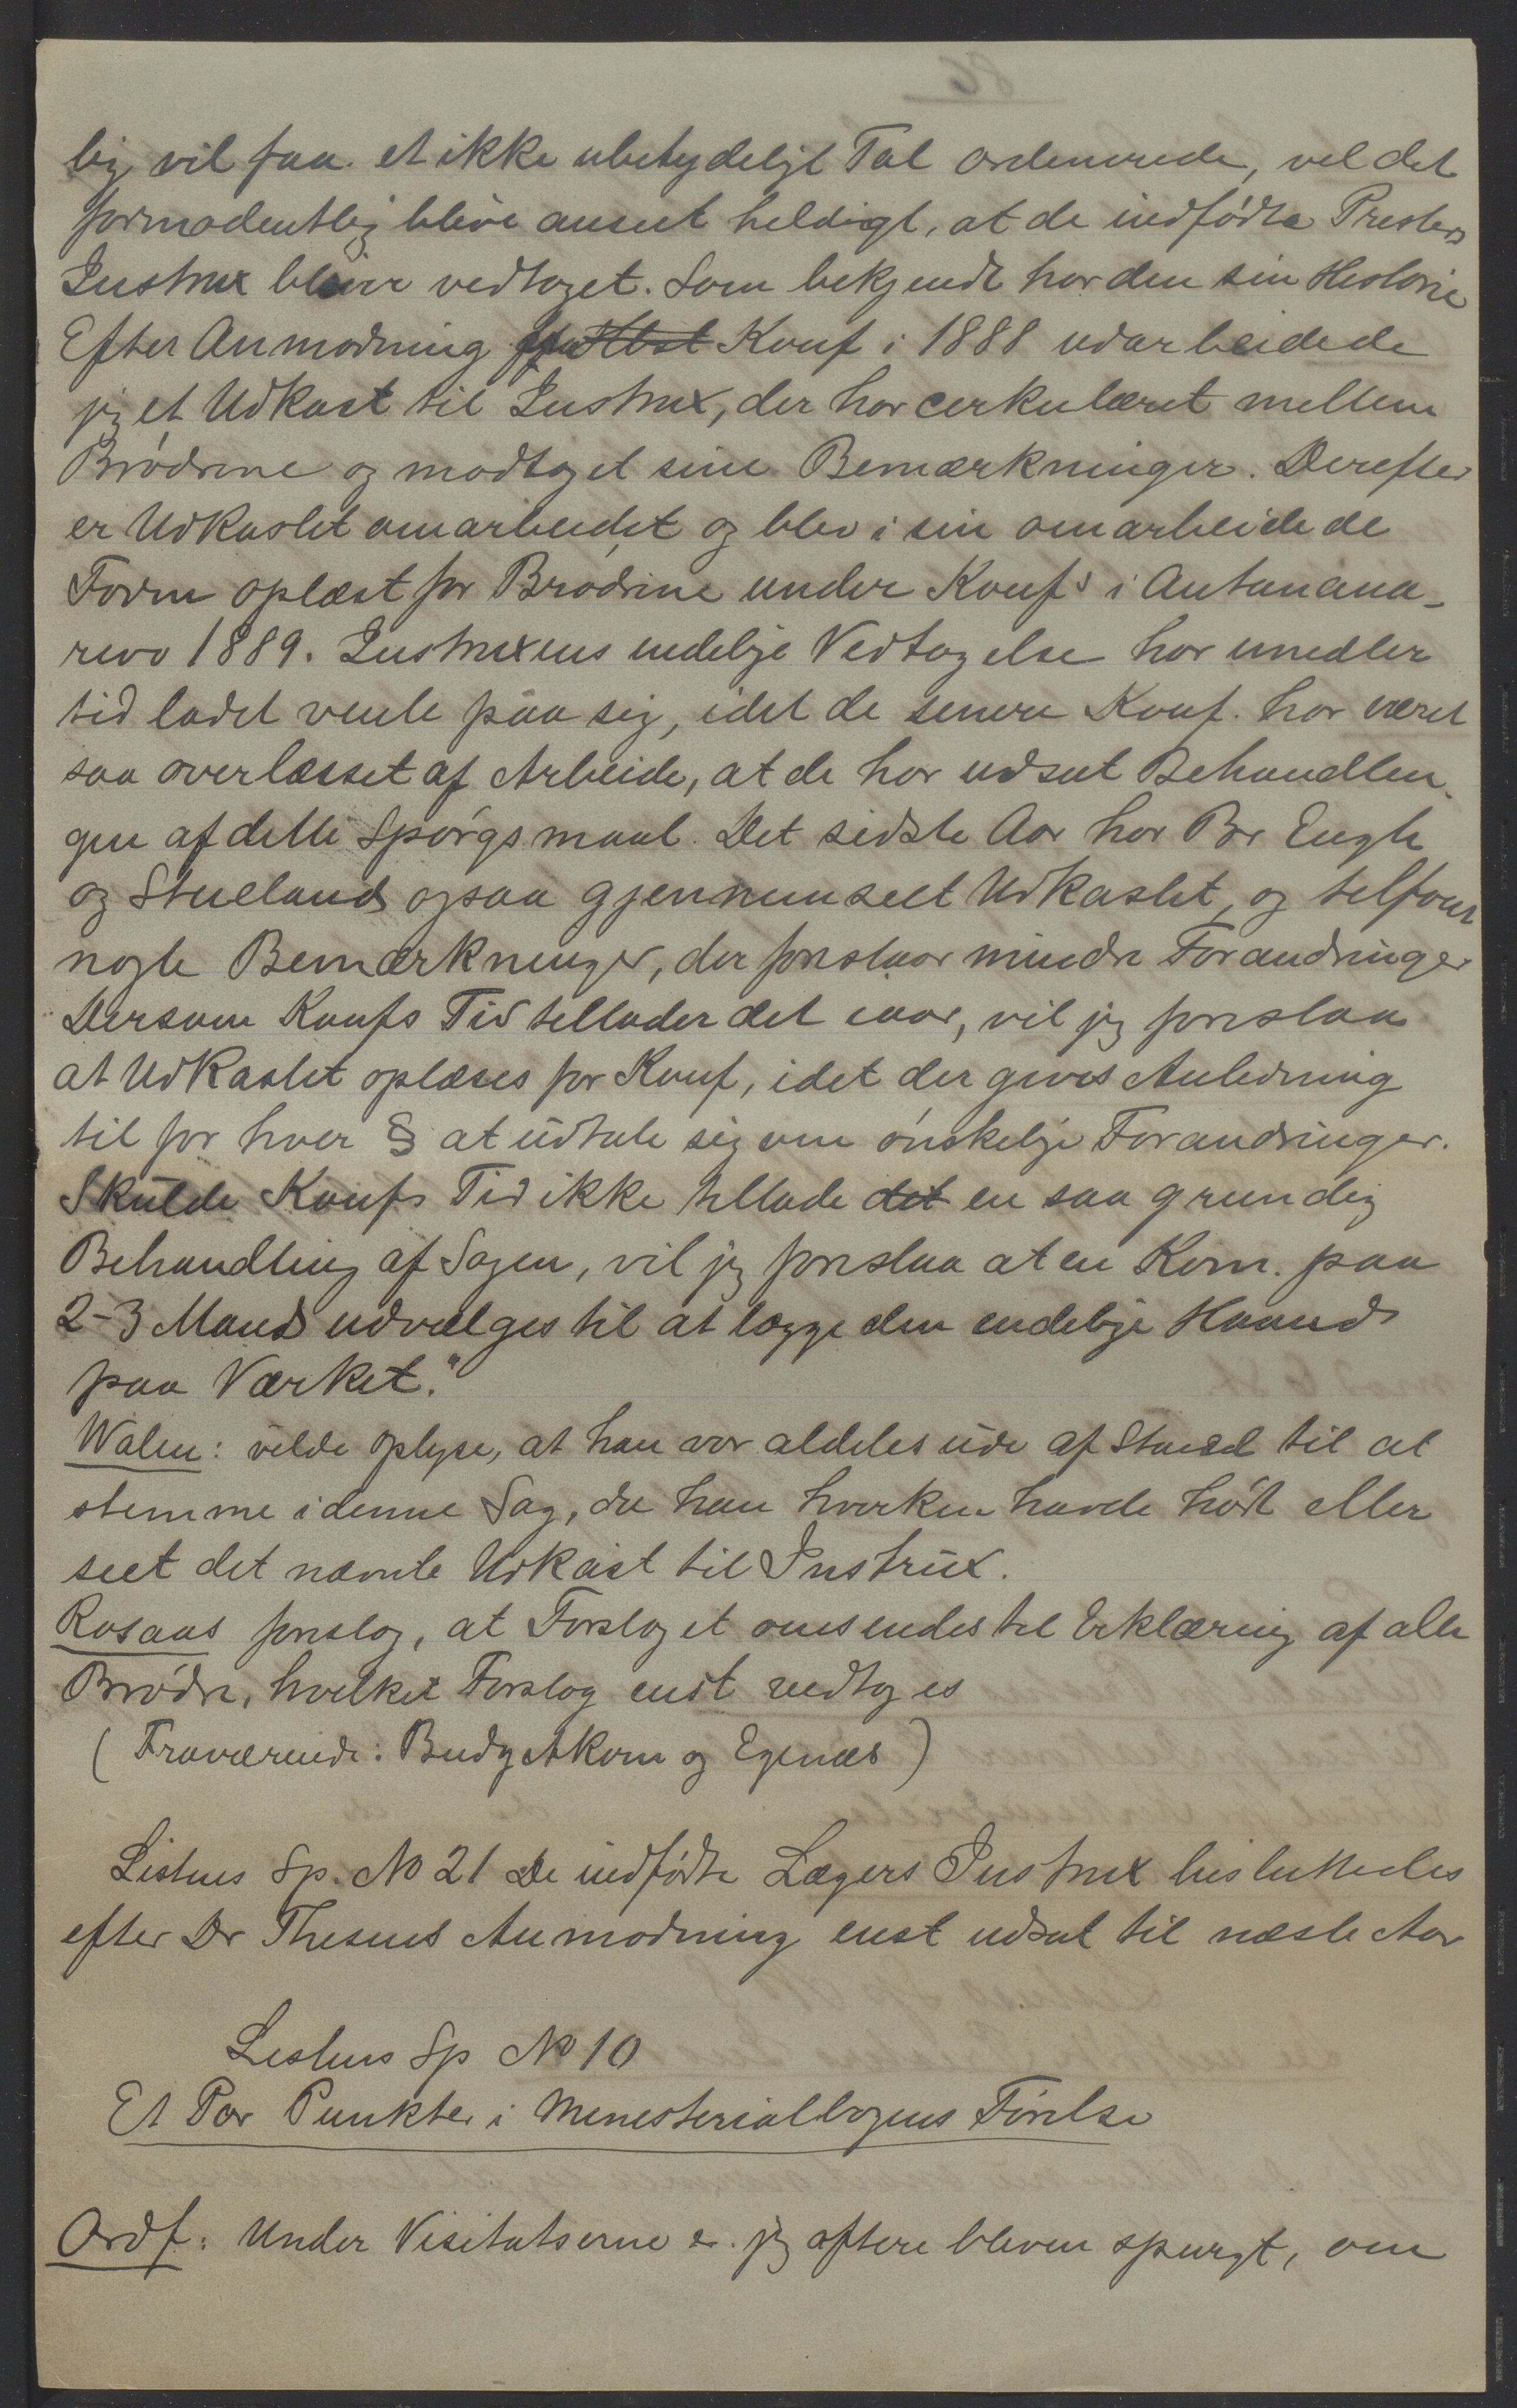 lig vil faa et ikke ubetydeligt Tal ordinerede, vil det
formodentlig blive anseet heldigt, at de indfødte Presters
Instrux bliver vedtaget. Som bekjendt har den sin Historie
Efter Anmodning Konf i 1888 udarbeidede
jeg et Udkast til Instrux, der har cerkuleret mellem
Brødrene og modtaget sine Bemærkninger. Derefter
er Udkastet omarbeidet og blev i sin omarbeidede
Form oplæst for Brødrene under Konfs i Antanana-
rivo 1889. Instruxens endelige Vedtagelse har imidler
tid ladet vente paa sig, idet de senere Konf. har været
saa overlæsset af Arbeide, at de har udsat Behandlin-
gen af dette Spørgsmaal. Det sidste Aar har Br Engh
og Stueland ogsaa gjennemseet Udkastet, og tilføiet
nogle Bemærkninger, der foreslaar mindre Forandringer
Dersom Konfs Tid tillader det iaar, vil jeg foreslaa
at Udkastet oplæses for Konf, idet der gives Anledning
til for hver § at udtale sig om ønskelige Forandringer.
Skulde Konfs Tid ikke tillade det en saa grundig
Behandling af Sagen, vil jeg foreslaa at en Kom. paa
2-3 Mand udvælges til at lægge den endelige Haand
paa Værket."
Walen: vilde oplyse, at han var aldeles ude af Stand til at
stemme i denne Sag, da han hverken havde hørt eller
seet det nævnte Udkast til Instrux.
Rosaas foreslog, at Forslaget omsendes til Erklæring af alle
Brødre, hvilket Forslag enst vedtoges
(Fraværende: Budgetkom og Egenæs)
Listens Sp. No 21 De indfødte Lægers Instrux besluttedes
efter Dr Thesens Anmodning enst udsat til næste Aar
Listens Sp No 10
Et Par Punkter i Menesterialbogens Førelse
Ordf: Under Visitatserne er jeg oftere bleven spurgt, om